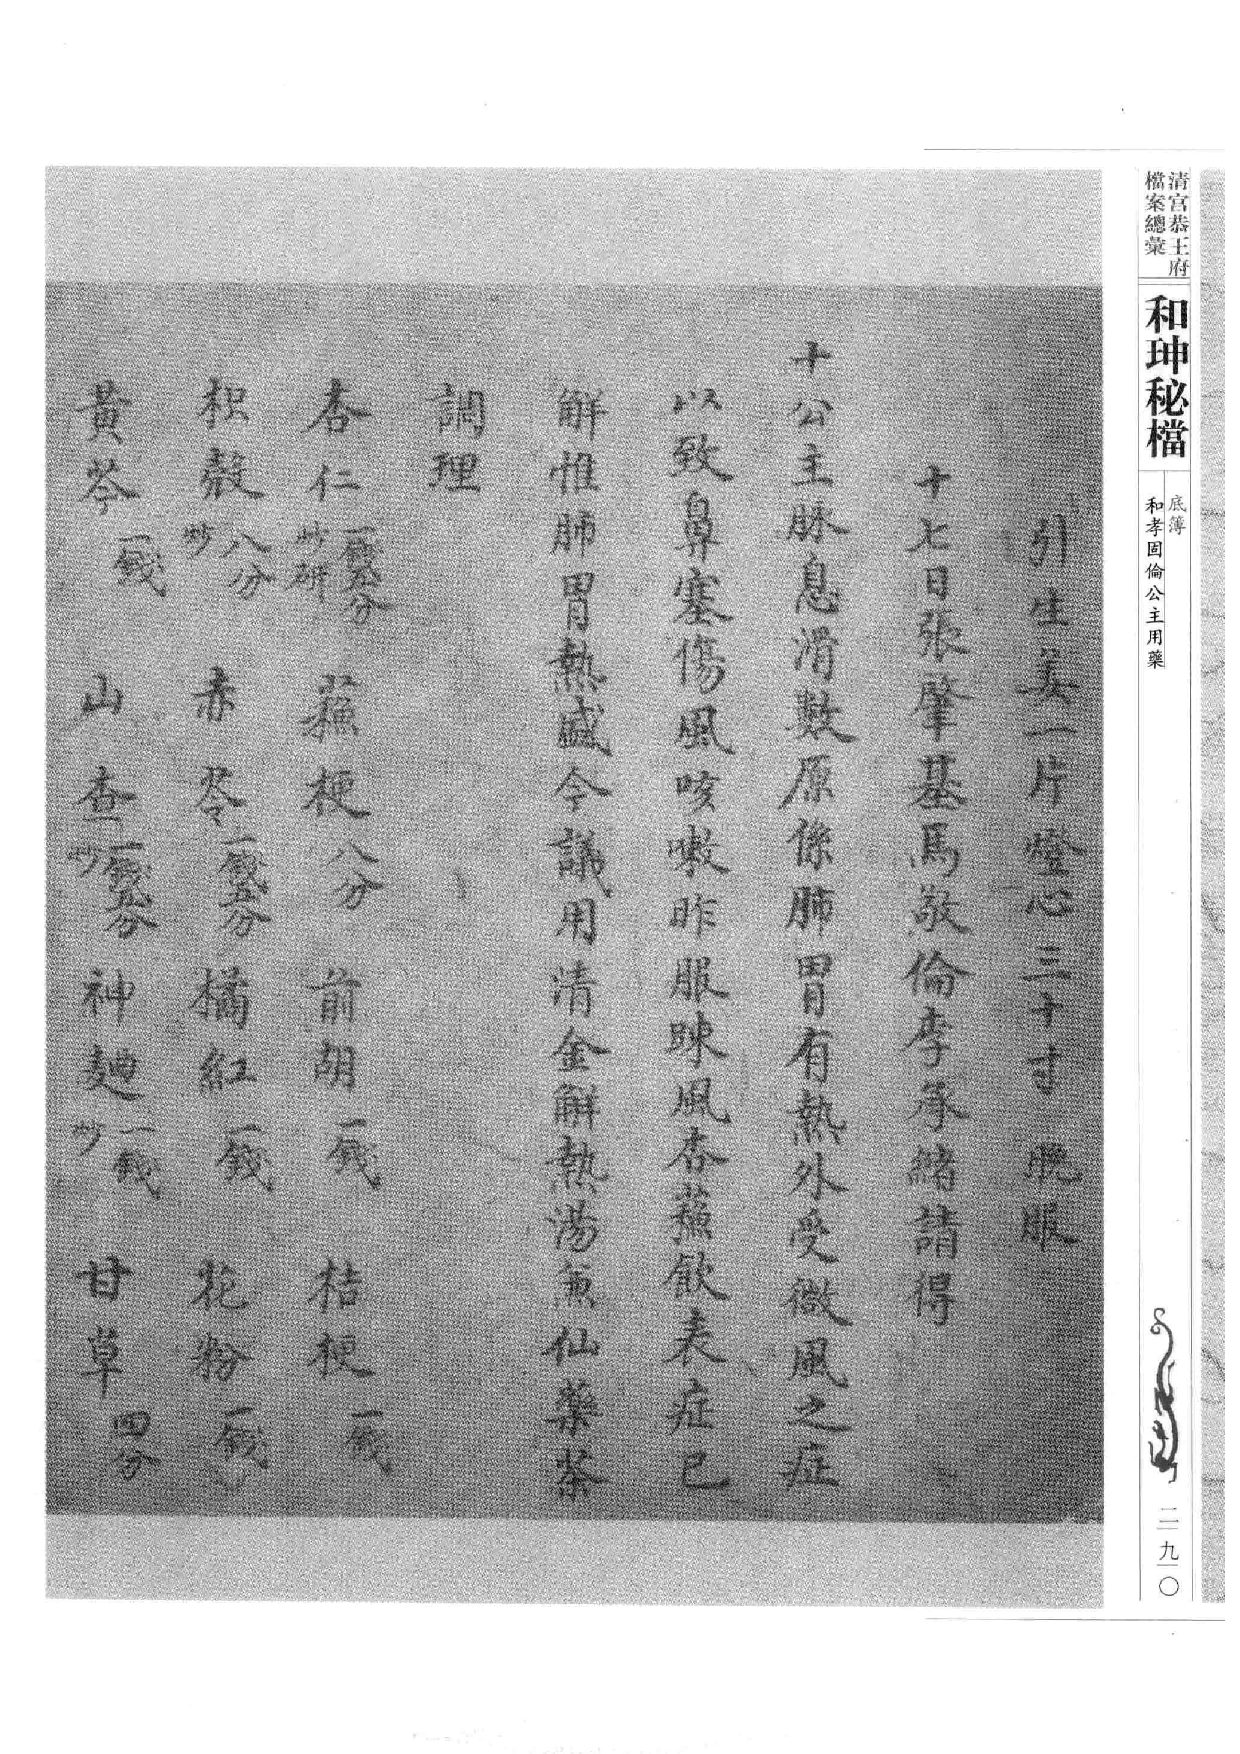 清宮恭王府
檔案總彙
和珅秘檔
底簿
和孝固倫公主用藥
二九〇
引生姜一片燈心三十寸 晚服
十七日張肇基馬敬倫李承緒請得
十公主脉息滑數原係肺胃有熱外受微風之症
以致鼻塞傷風咳嗽昨服踈風杏蘇飲表症已
解惟肺胃熱盛今議用清金解熱湯兼仙藥茶
調理
杏仁一錢五分炒研 蘇梗八分 前胡一錢 桔梗一錢
枳殼八分炒 赤苓一錢五分 橘紅一錢 花粉一錢
黃芩一錢 山查一錢五分炒 神麯一錢炒 甘草四分